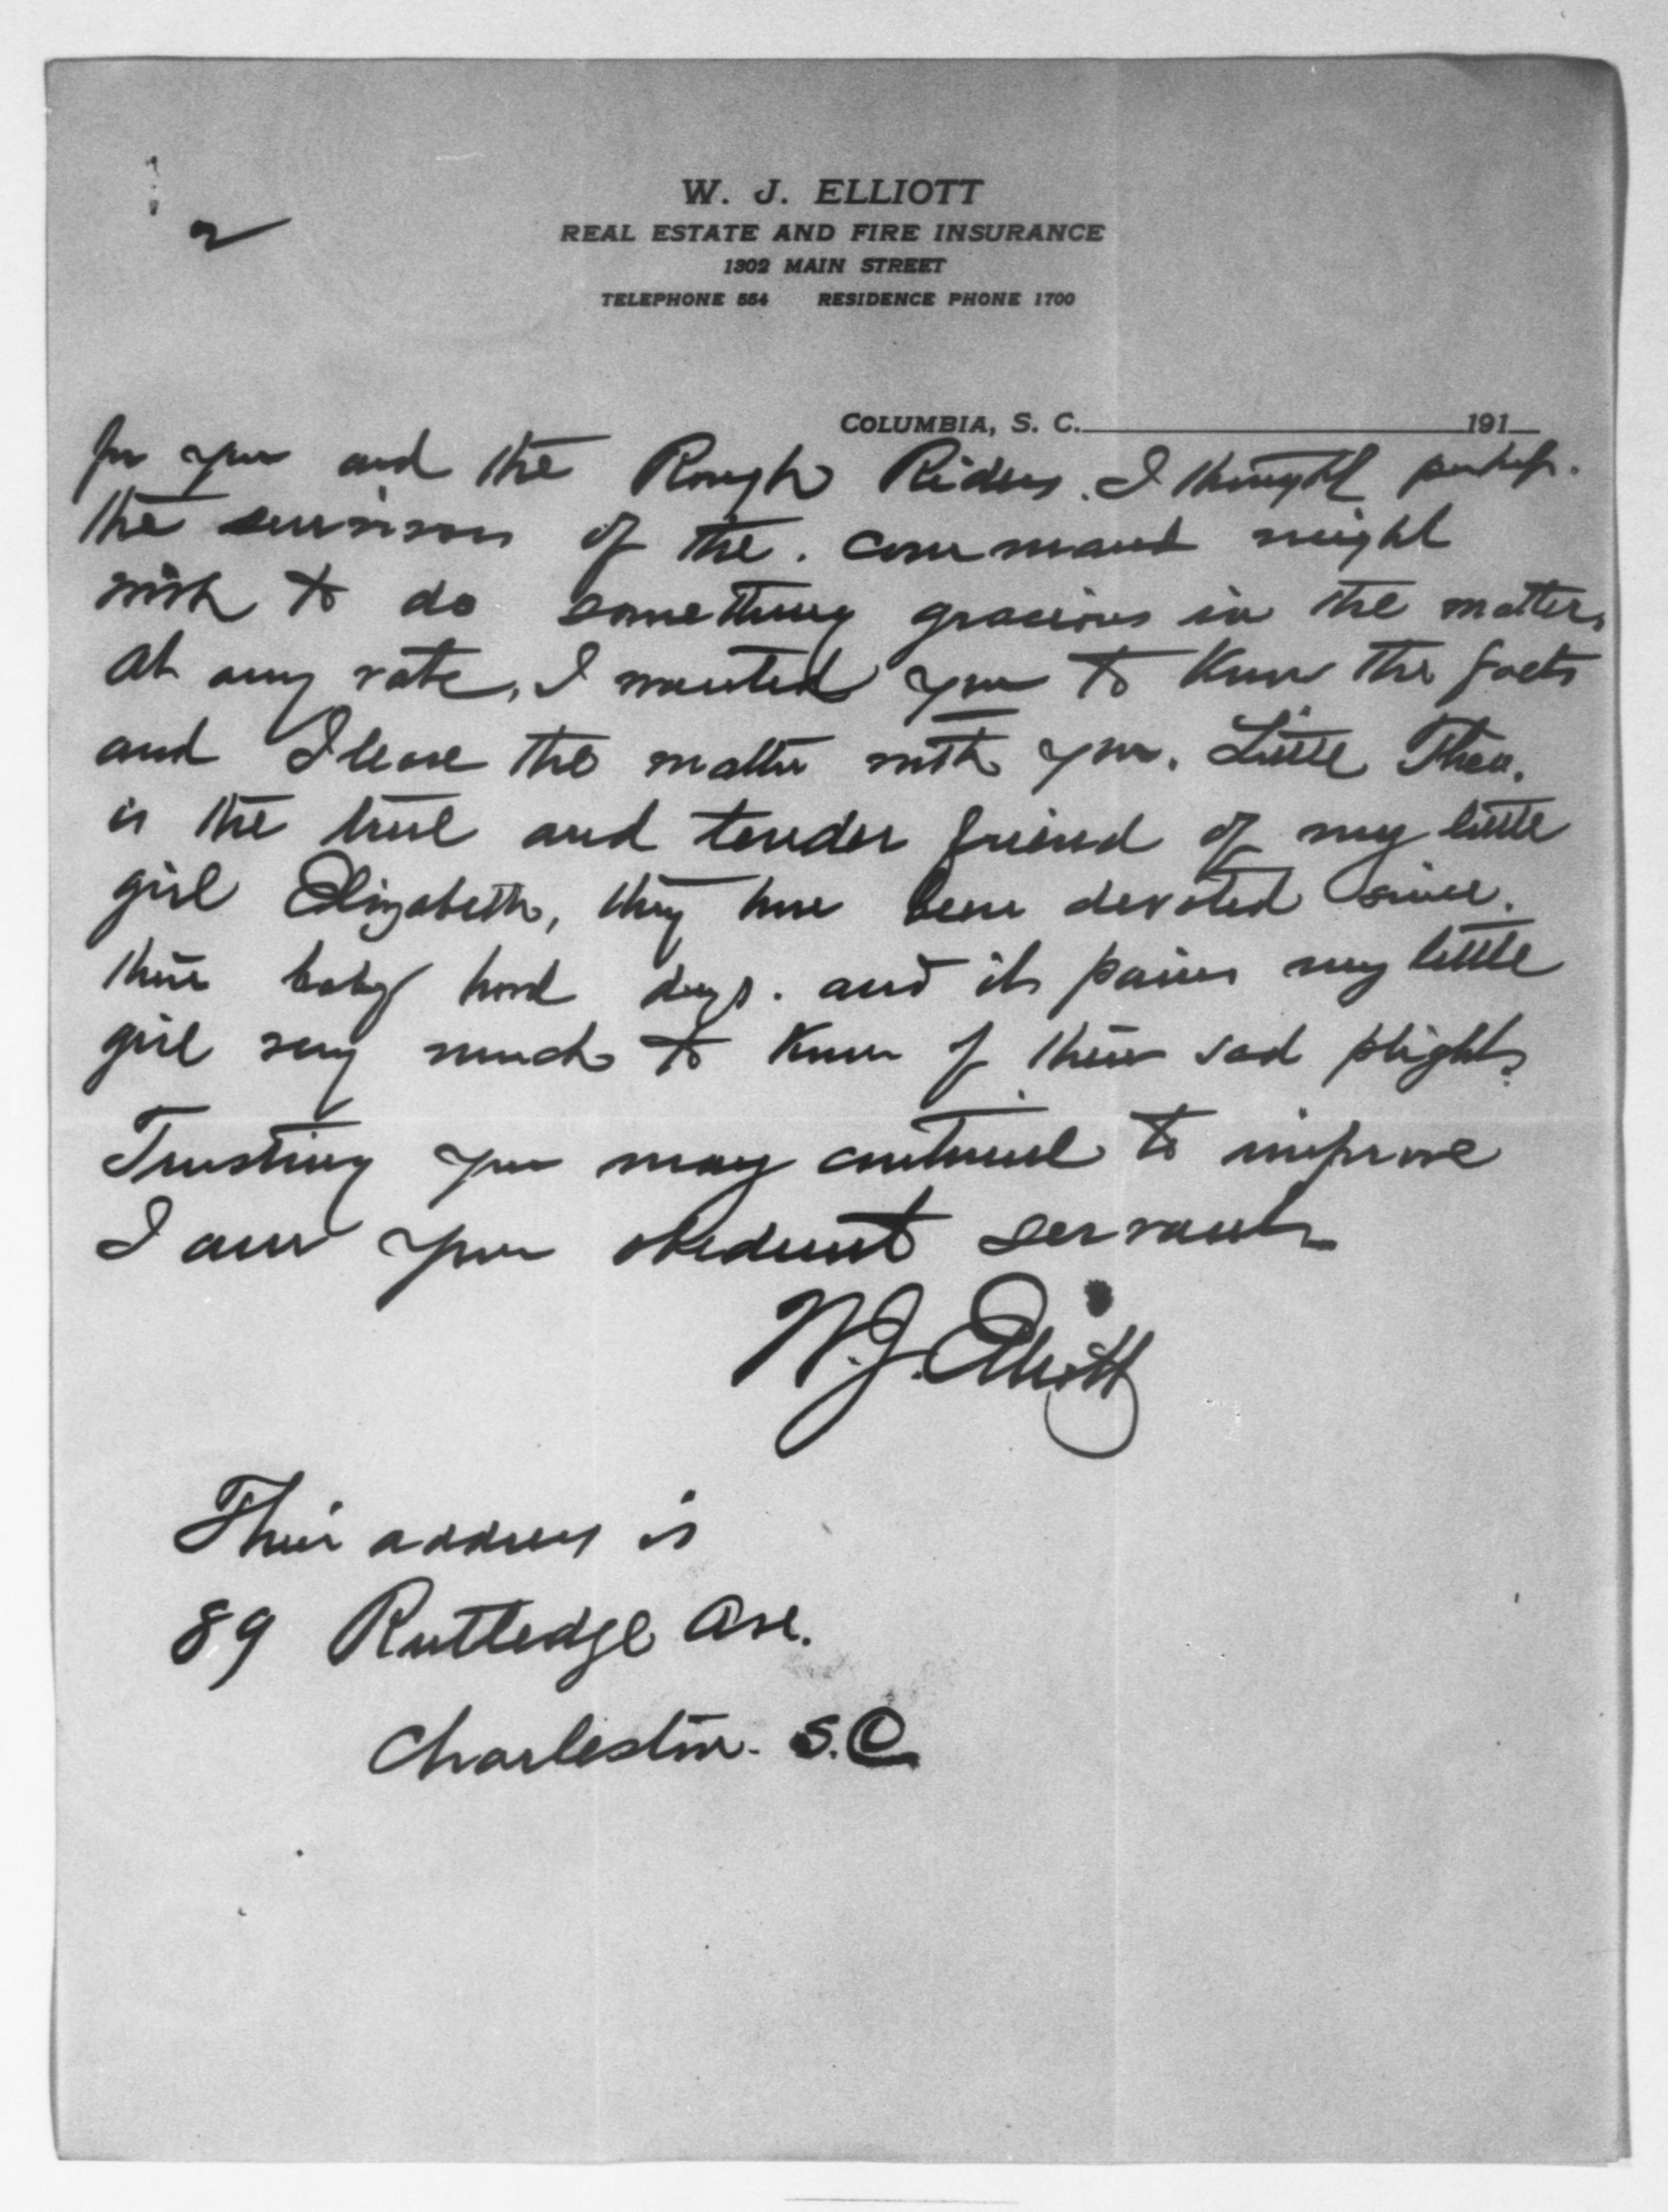 2
W. J. ELLIOTT
REAL ESTATE AND FIRE INSURANCE
1302 MAIN STREET
TELEPHONE 554 RESIDENCE PHONE 1700
COLUMBIA, S. C. 191
for you and the Rough Riders. I thought perhaps.
the survivors of the. command might
wish to do something gracious in the matter.
At any rate, I wanted you to know the facts
and I leave the matter with you. Little Theo.
is the true and tender friend of my little
girl Elizabeth, they have been devoted since.
their baby hood days. and it pains my little
girl very much to know of their sad plight.
Trusting you may continue to improve
I am your obedient servant
W. J. Elliott
Their address is
89 Rutledge Ave.
Charleston. S.C